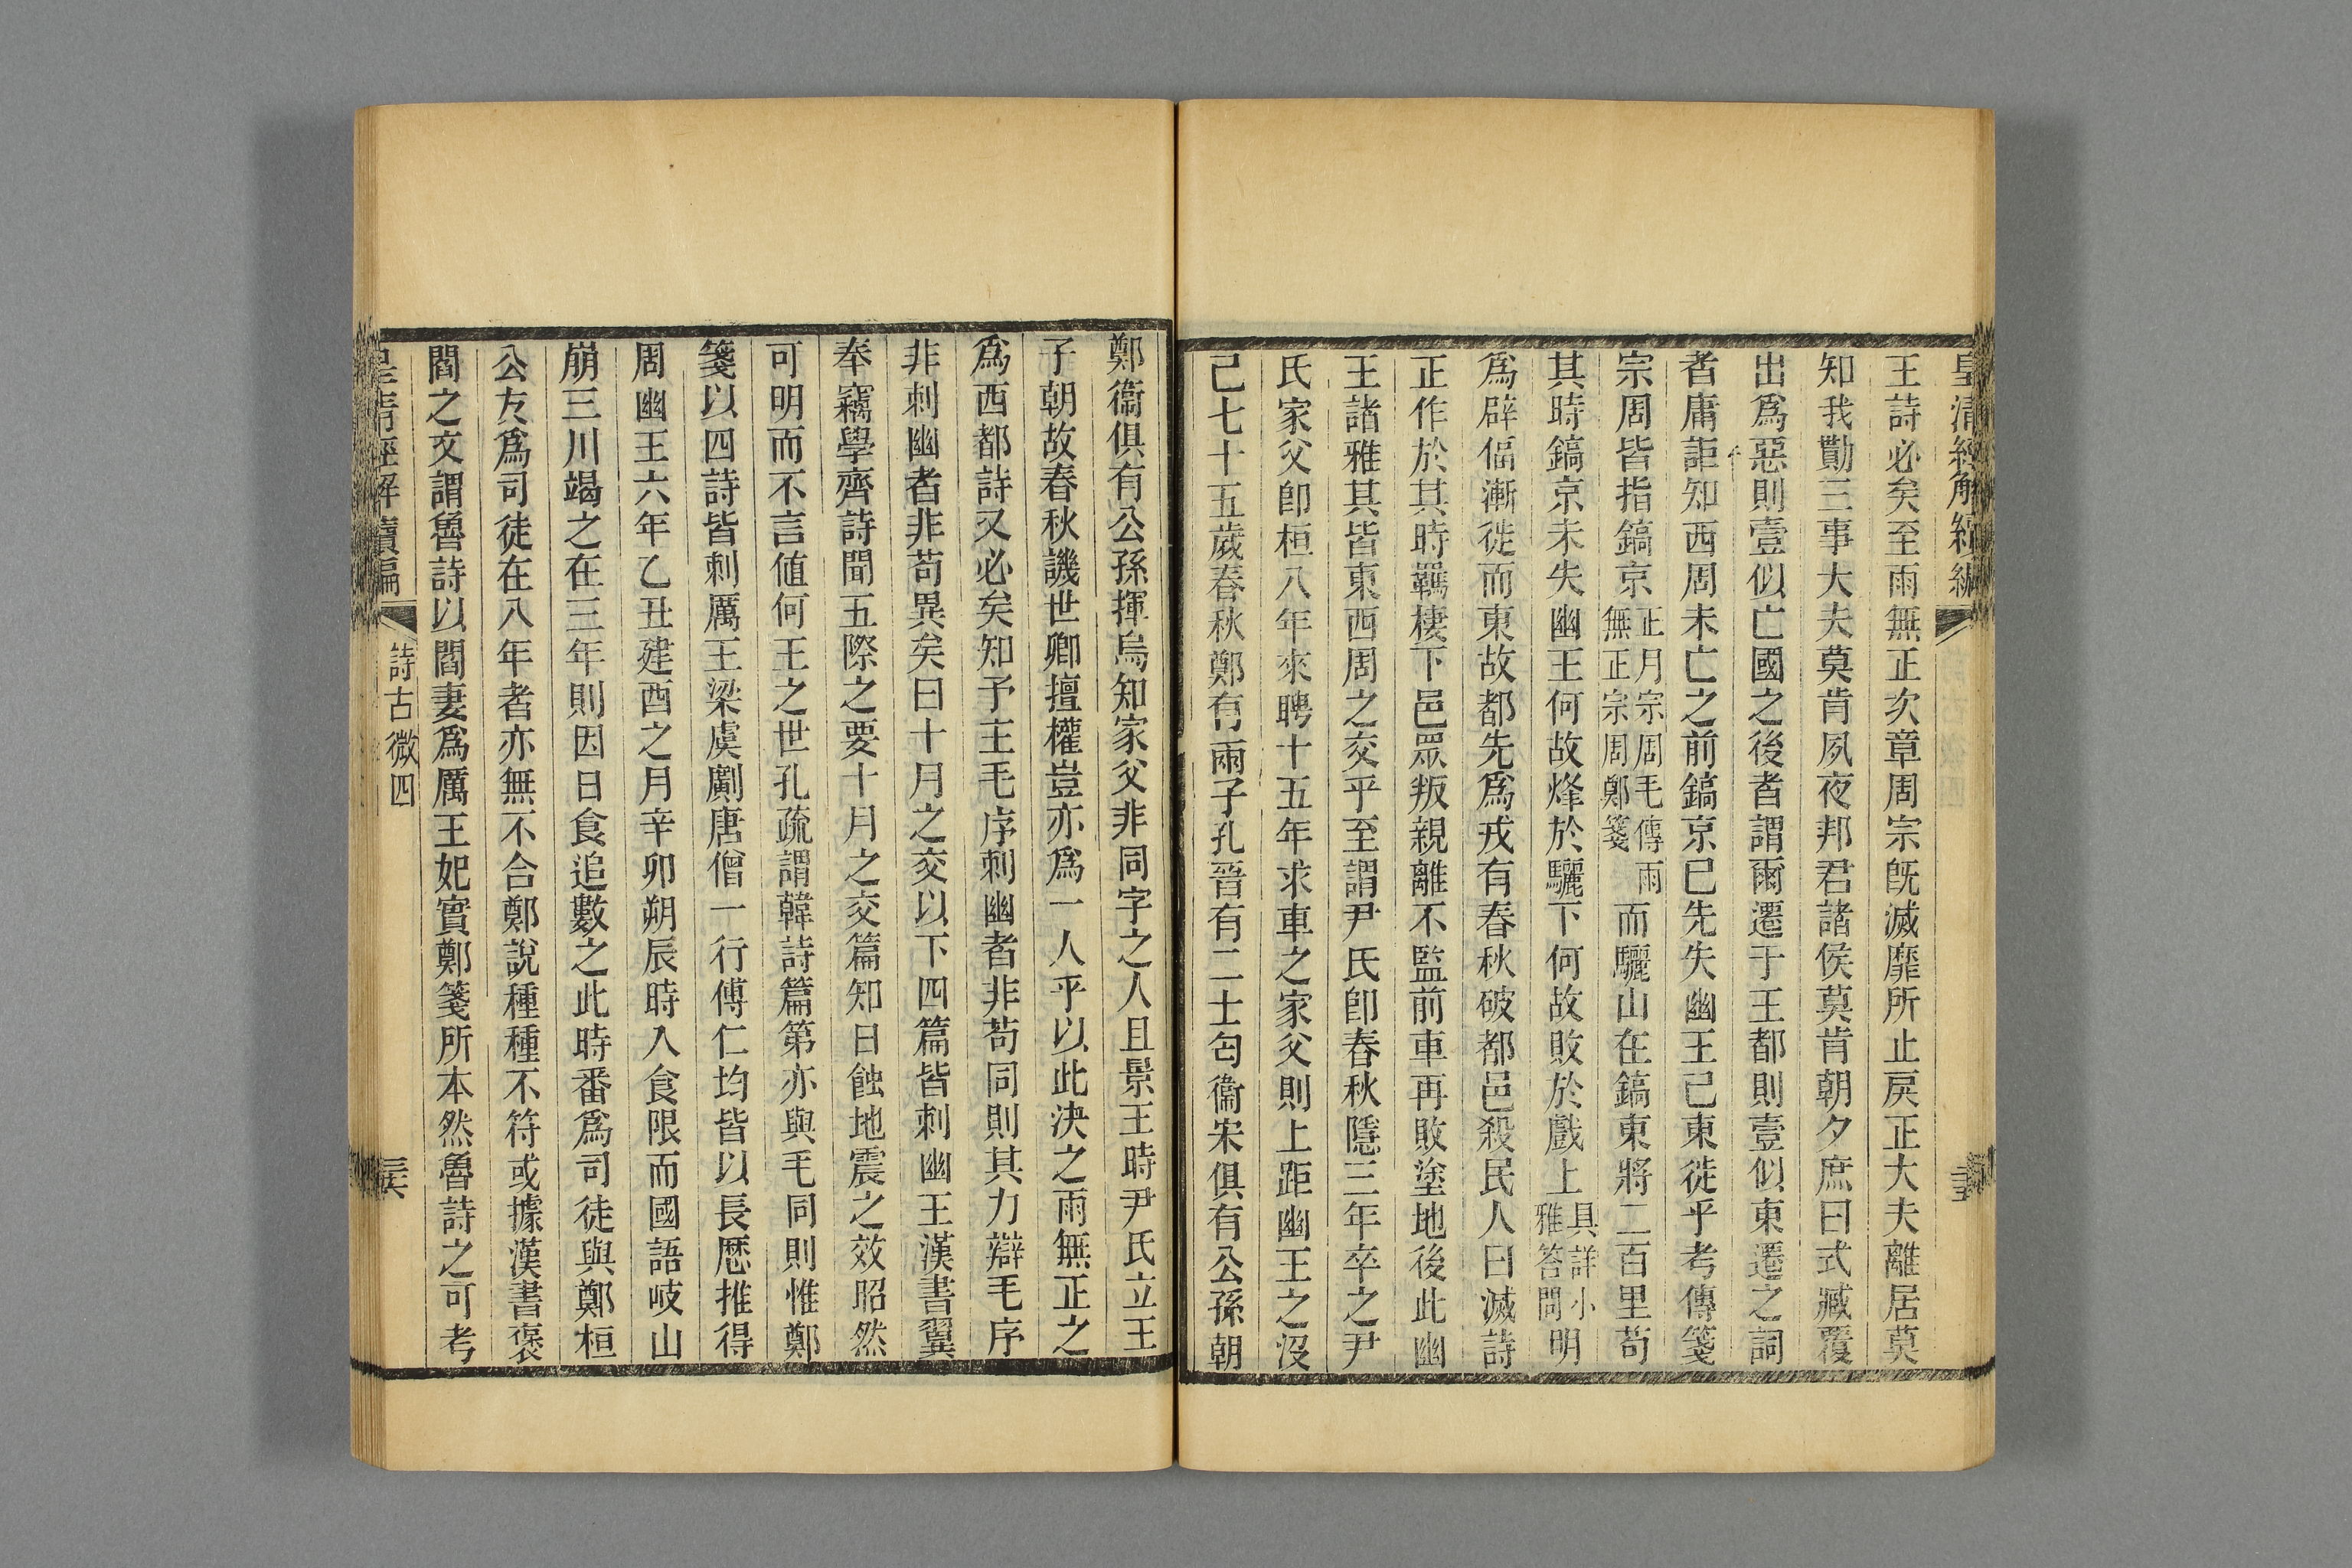 皇清經解續編
王詩必矣至雨無正次章周宗旣滅靡所止戾正大夫離居莫
知我勩三事大夫莫肯夙夜邦君諸侯莫肯朝夕庶曰式臧覆
出爲惡則壹似亡國之後者謂爾遷于王都則壹似東遷之詞
者庸詎知西周未亡之前鎬京已先失幽王已東徙乎考傳箋
宗周皆指鎬京正月宗周毛傳雨無正宗周鄭箋而驪山在鎬東將二百里苟
其時鎬京未失幽王何故烽於驪下何故敗於戲上具詳小雅答問明
爲辟偪漸徙而東故都先爲戎有春秋破都邑殺民人曰滅詩
正作於其時羈棲下邑眾叛親離不監前車再敗塗地後此幽
王諸雅其皆東西周之交乎至謂尹氏卽春秋隱三年卒之尹
氏家父卽桓八年來聘十五年求車之家父則上距幽王之沒
已七十五歲春秋鄭有兩子孔晉有二士匄衞宋俱有公孫朝
鄭衞俱有公孫揮烏知家父非同字之人且景王時尹氏立王
子朝故春秋譏世卿擅權豈亦爲一人乎以此決之雨無正之
爲西都詩又必矣知予主毛序刺幽者非苟同則其力辯毛序
非刺幽者非苟異矣曰十月之交以下四篇皆刺幽王漢書翼
奉竊學齊詩聞五際之要十月之交篇知日蝕地震之效昭然
可明而不言値何王之世孔疏謂韓詩篇第亦與毛同則惟鄭
箋以四詩皆刺厲王梁虞劌唐僧一行傅仁均皆以長厤推得
周幽王六年乙丑建酉之月辛卯朔辰時入食限而國語岐山
崩三川竭之在三年則因日食追數之此時番爲司徒與鄭桓
公友爲司徒在八年者亦無不合鄭說種種不符或據漢書褒
閻之文謂魯詩以閻妻爲厲王妃實鄭箋所本然魯詩之可考
皇清經解續編
詩古微四